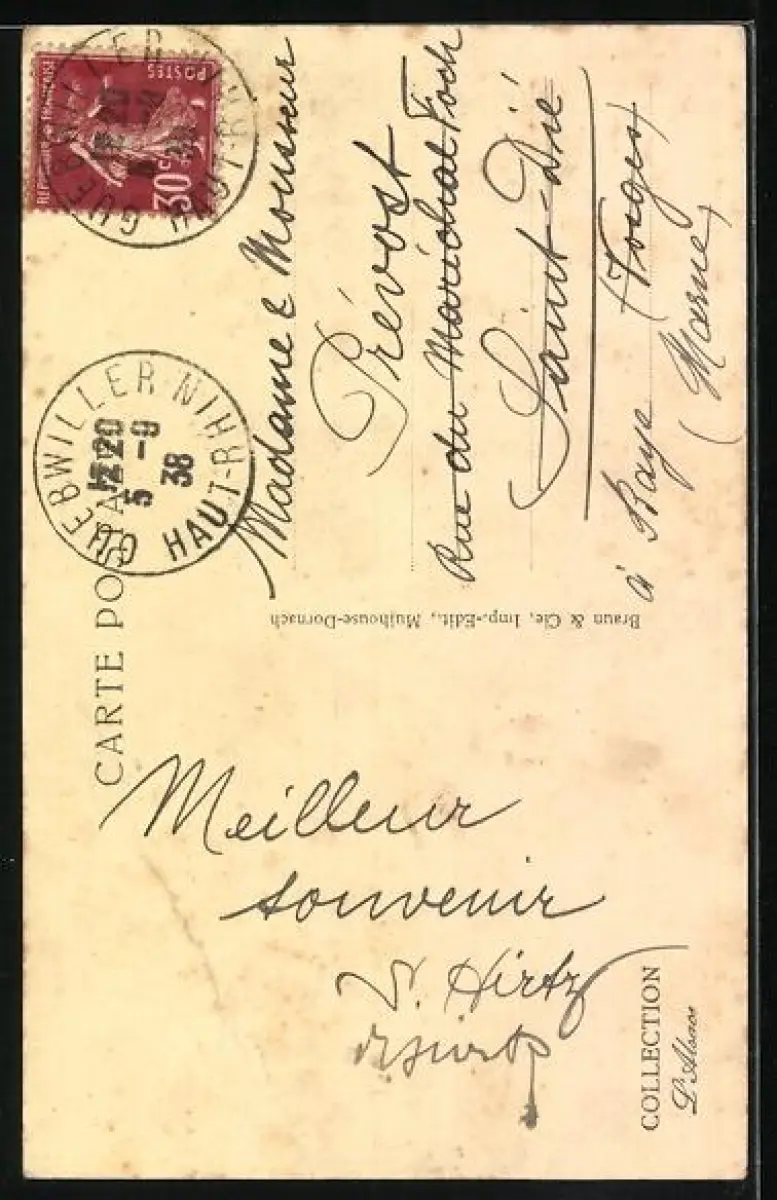 CARTE POSTALE
Meilleur
souvenir
Hirtz
COLLECTION
L'Alsace
Braun & Cie, Imp.-Edit., Mulhouse-Dornach
REPUBLIQUE FRANÇAISE
POSTES
30c
GUEBWILLER
HAUT-RHIN
GUEBWILLER
HAUT-RHIN
12 20
5 -9
38
Madame & Monsieur
Prévost
Rue du Maréchal Foch
Saint-Dié
(Vosges)
à Baye
(Marne)